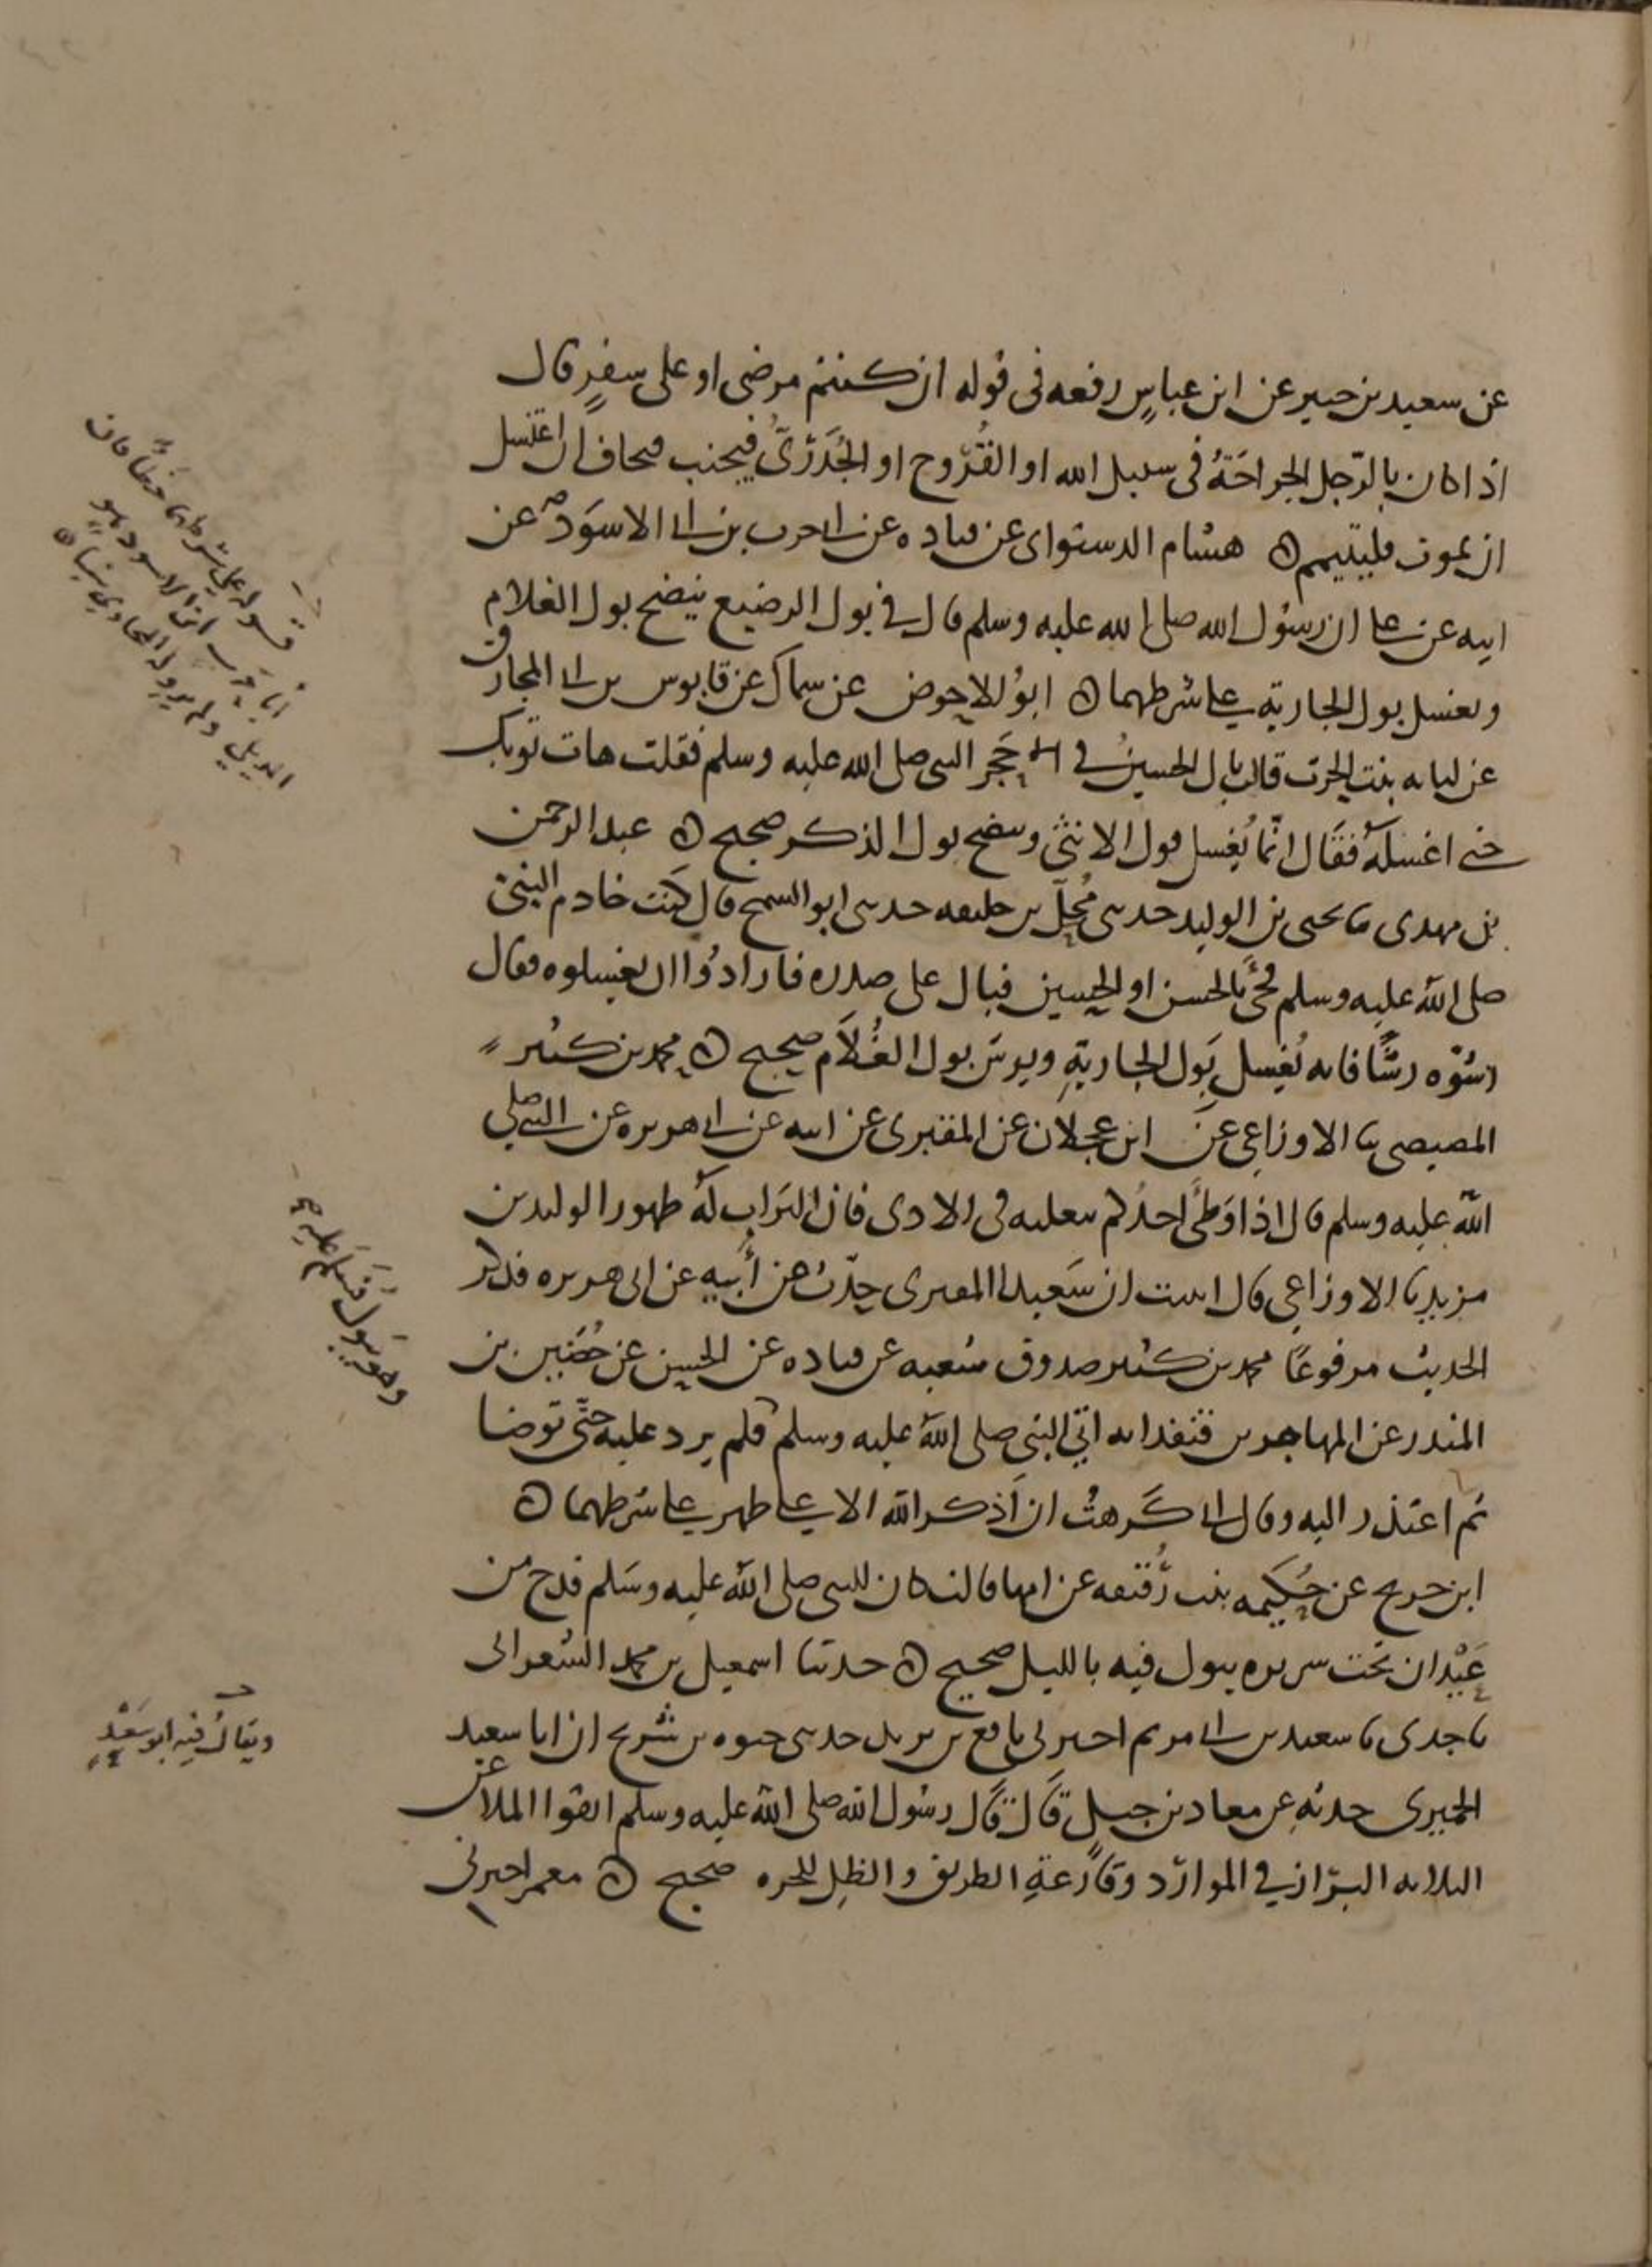 عن سعيد بن جبير عن ابن عباسٍ رفعه فى قوله ان كنتم مرضى او على سفرٍ قال
اذا كان بالرّجل الجراحَةُ فى سبيل الله او القُرُوح او الجُدَرىُّ فيجنب فيخاف ان اغتسل
ان يموت فليتيمم ه هشام الدستوائى عن قتاده عن ابى حرب بن ابى الاسوَد عن
ابيه عن على ان رسُول الله صلى الله عليه وسلم قال فى بول الرضيع ينضح بول الغلام
ويغسل بول الجارية على شرطهما ه ابوُ الاحوص عن سماك عن قابوس بن ابى المخارق
عن لبابه بنت الحرث قالت بال الحسينُ فى حَجر النبى صلى الله عليه وسلم فقلت هات ثوبك
حتى اغسلَهُ فقَال انّما يُغسل بول الانثى وينضح بول الذكر صحيح ه عبد الرحمن
بن مهدى ثنا يحيى بن الوليد حدثنى مُحِلّ بن خليفه حدثنى ابو السمح قال كنت خادم النبى
صلى الله عليه وسلم فجئَ بالحسن او الحسين فبال على صدره فارادوُا ان يغسلوه فقال
رشوّه رشًّا فانه يُغسل بَول الجاريَةِ ويرش بول الغُلاَم صحيح ه محمد بن كثير
المصيصى ثنا الاوزاعى عن ابن عجلان عن المقبرى عن ابيه عن ابى هريره عن النبى صلى
الله عليه وسلم قال اذا وَطئَ احدُكم بنعليه فى الاذى فان التراب لَهُ طهور الوليد بن
مزيد ثنا الاوزاعى قال انبئت ان سَعيد المقبرى حدّث عن أبيه عن ابى هريره فذكر
الحديث مرفوعًا محمد بن كثير صدوق شعبه عن قتاده عن الحسن عن حُضَين بن
المنذر عن المهاجر بن قنفذ انه اتى النبى صلى الله عليه وسلم فلم يرد عليه حتّى توضا
ثم اعتذر اليه وقال انى كَرهتُ ان اَذكر الله الا على طهر على شرطهما ه
ابن جريج عن حُكَيمه بنت رُقيقه عن امها قالت كان للنبى صلى الله عليه وسَلم قدح من
عَيْدان تحت سريره يبول فيه بالليل صحيح ه حدثنا اسمعيل بن محمد الشعرانى
ثنا جدى ثنا سعيد بن ابى مريم اخبرنى نافع بن يزيد حدثنى حيوه بن شُريح ان ابا سعيد
الحميرى حدثه عن معاذ بن جبلٍ قَال قَال رسُول الله صلى الله عليه وسلم اتقوا الملاعن
الثلاثه البَرَاز فى الموارد وقَارعَةِ الطريق والظِل للخره صحيح ه معمر اخبرنى
وهو يَبول فَسَلّم عليه
ويقال فيه ابو سَعْدٍ